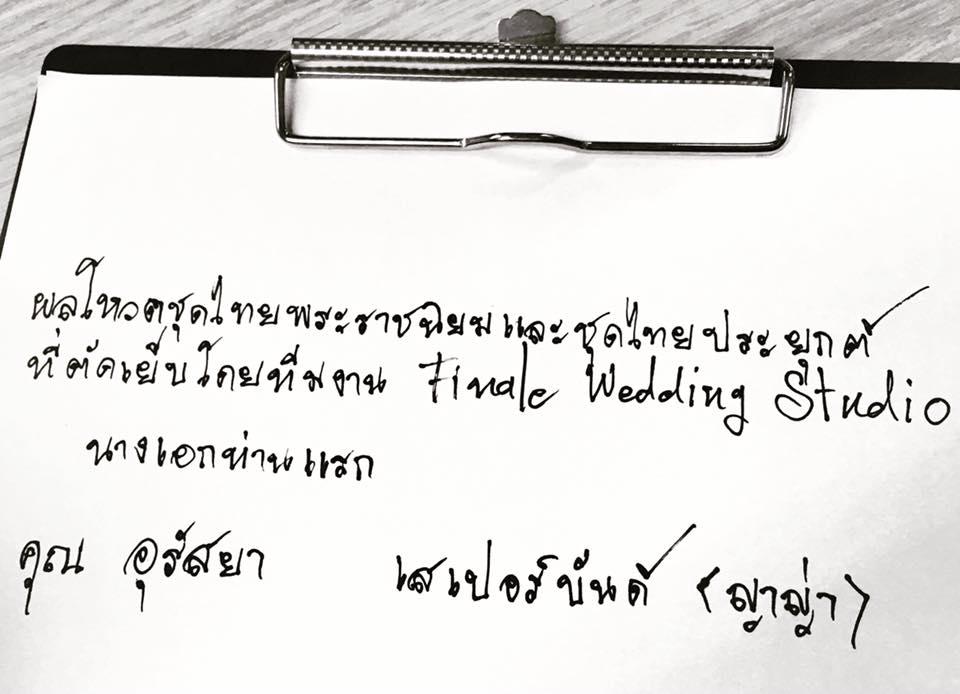 ผลโหวตชุดไทยพระราชนิยมและชุดไทยประยุกต์
ที่ตัดเย็บโดยทีมงาน Finale Wedding Studio
นางเอกท่านแรก
คุณ อุรัสยา เสปอร์บันด์ (ญาญ่า)